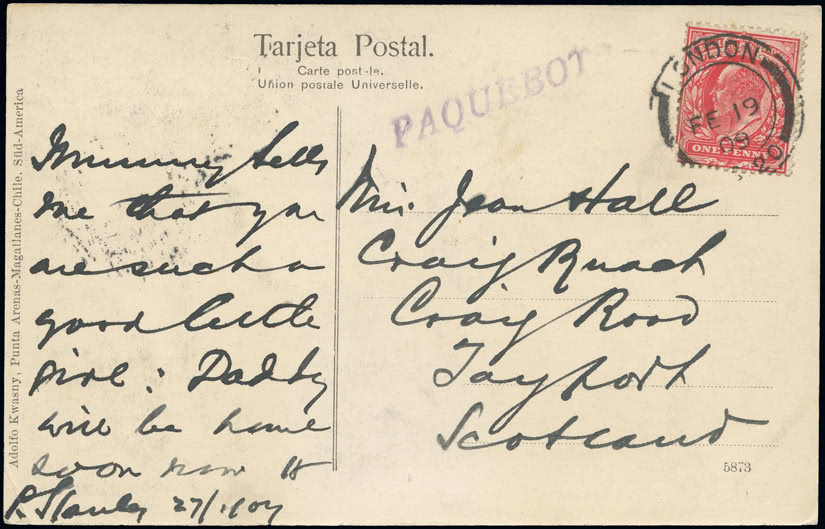 Tarjeta Postal.
Carte postale.
Union postale Universelle.
PAQUEBOT
LONDON
FE 19
09
ONE PENNY
Adolfo Kwasny, Punta Arenas-Magallanes-Chile. Süd-America
Mummy tells
me that you
are such a
good little
girl: Daddy
will be home
soon now
P. Stanley 27/1.09
Miss Jean Hall
Craig Ruach
Craig Road
Tayport
Scotland
5873